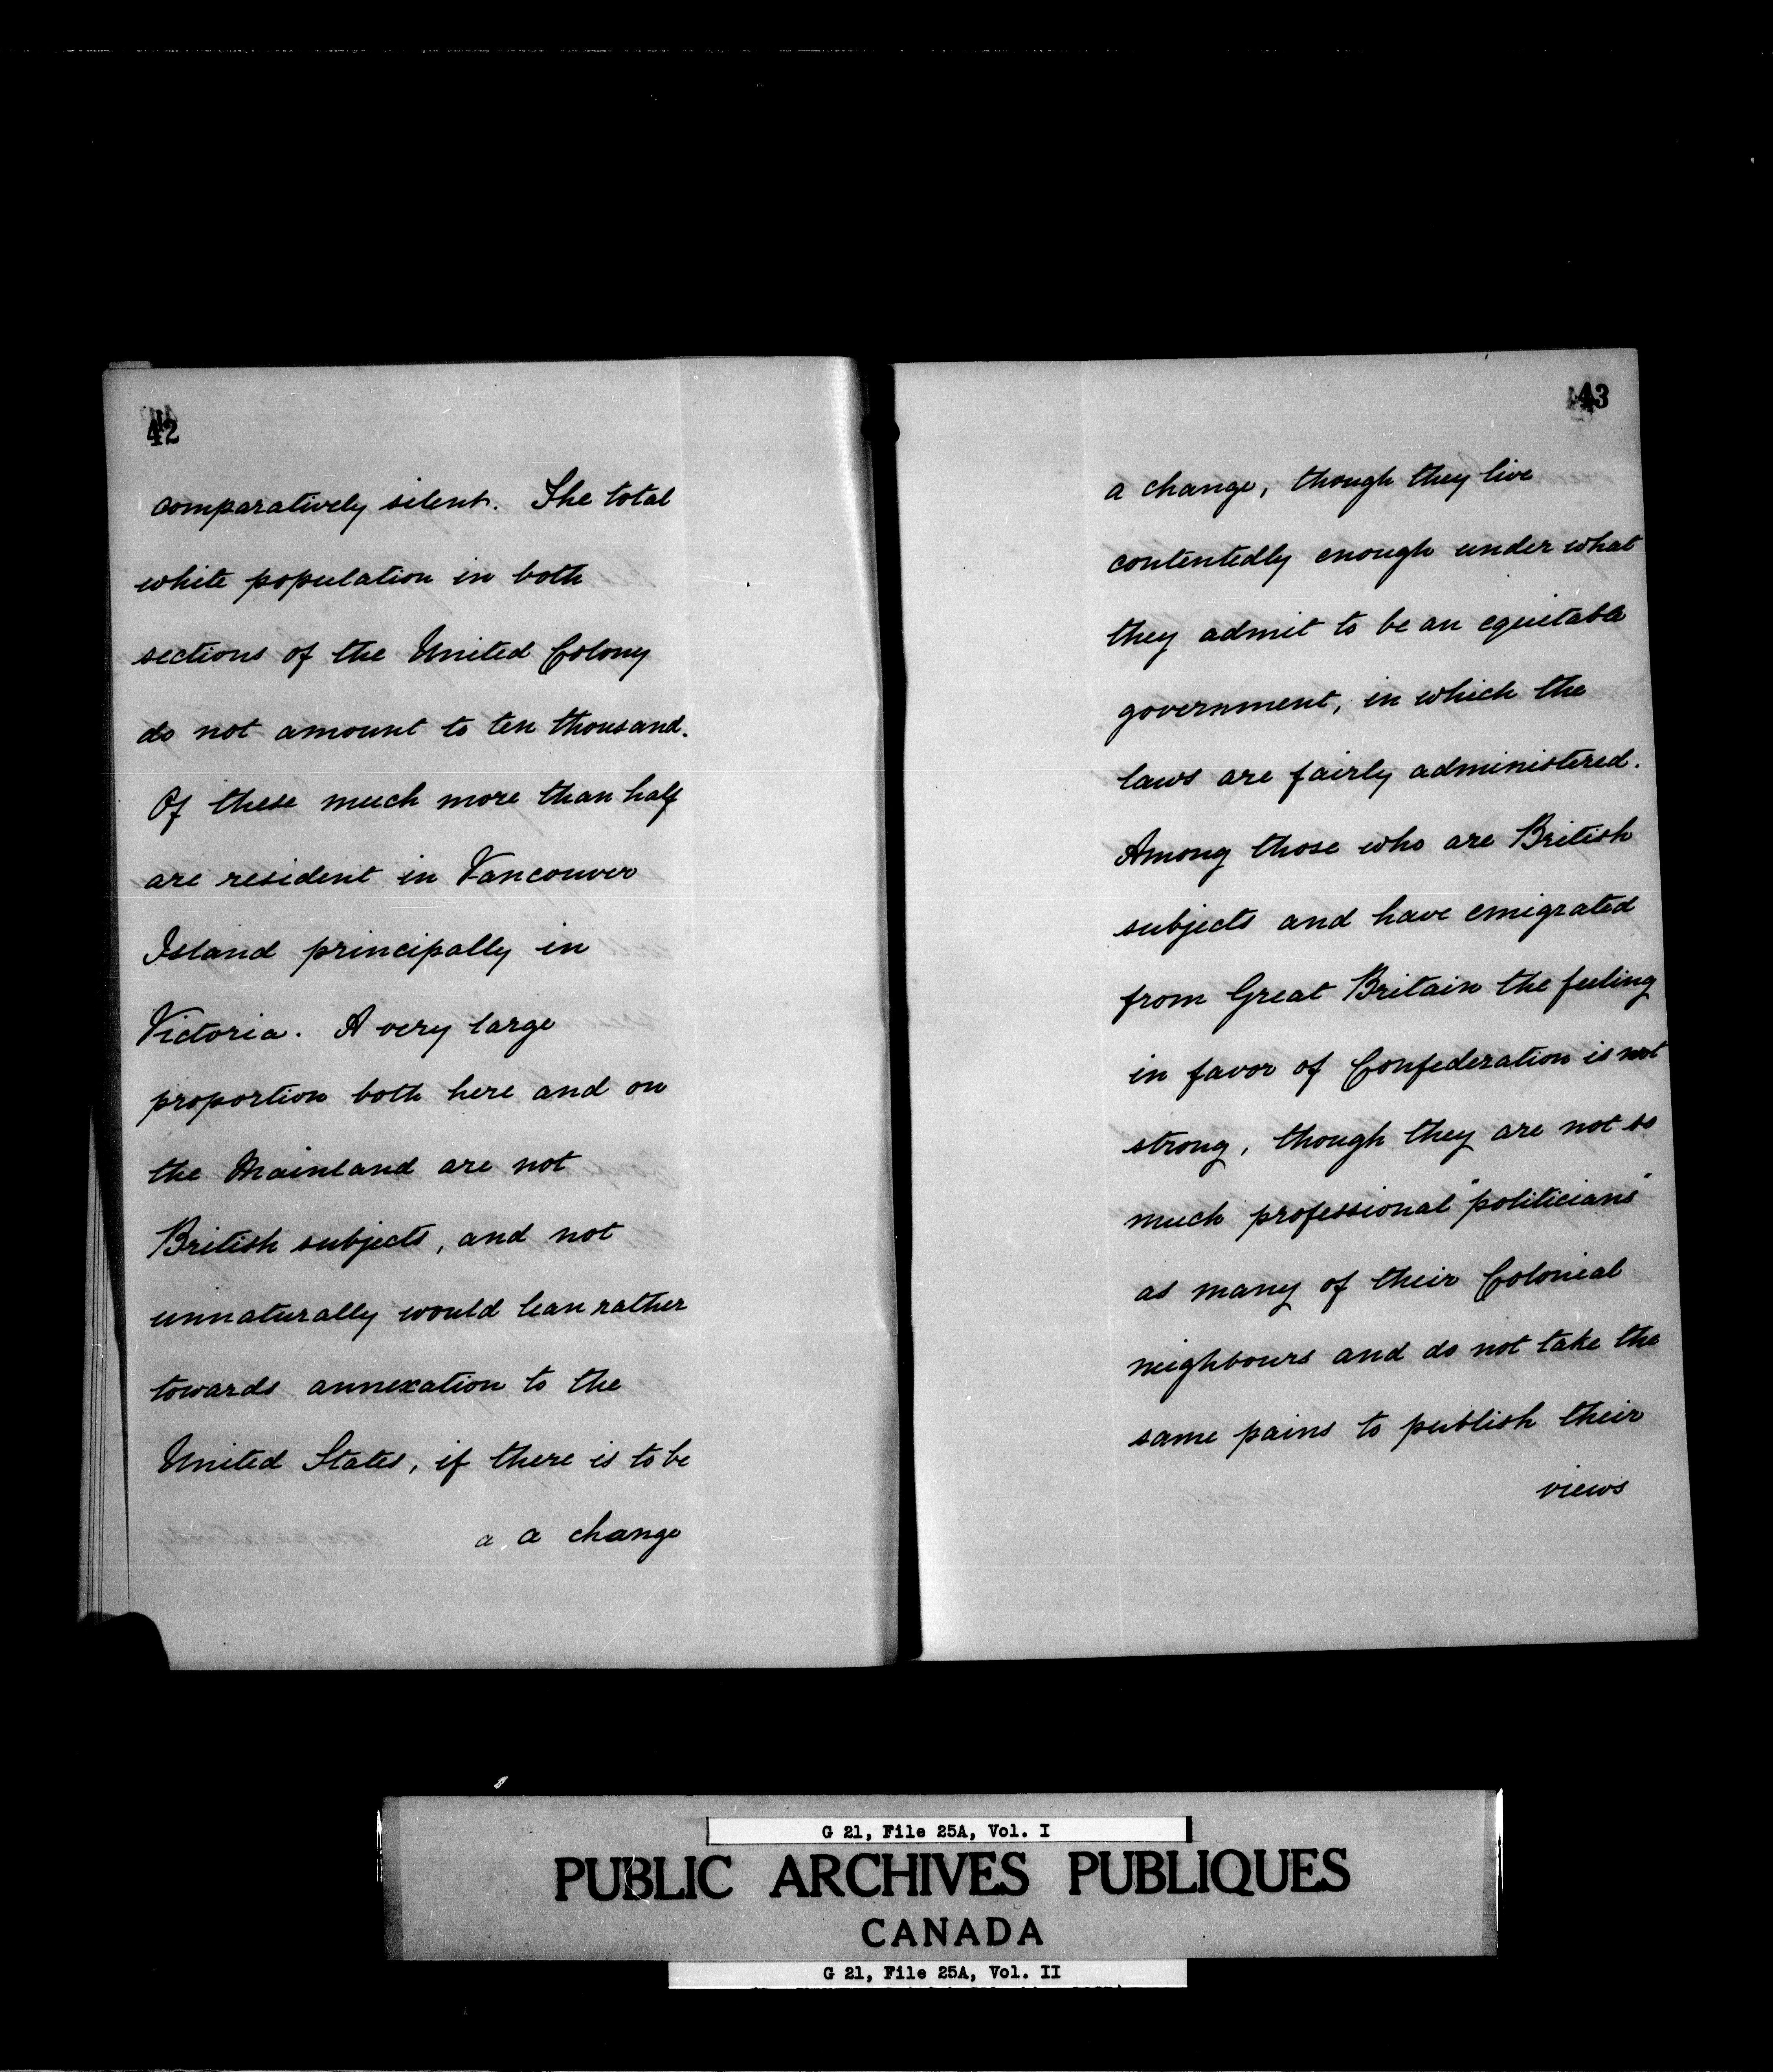 42
comparatively silent. The total
white population in both
sections of the United Colony
do not amount to ten thousand.
Of these much more than half
are resident in Vancouver
Island principally in
Victoria. A very large
proportion both here and on
the Mainland are not
British subjects, and not
unnaturally would lean rather
towards annexation to the
United States, if there is to be
a a change
43
a change, though they live
contentedly enough under what
they admit to be an equitable
government, in which the
laws are fairly administered.
Among those who are British
subjects and have emigrated
from Great Britain the feeling
in favor of Confederation is not
strong, though they are not so
much professional "politicians"
as many of their Colonial
neighbours and do not take the
same pains to publish their
views
G 21, File 25A, Vol. I
PUBLIC ARCHIVES PUBLIQUES
CANADA
G 21, File 25A, Vol. II